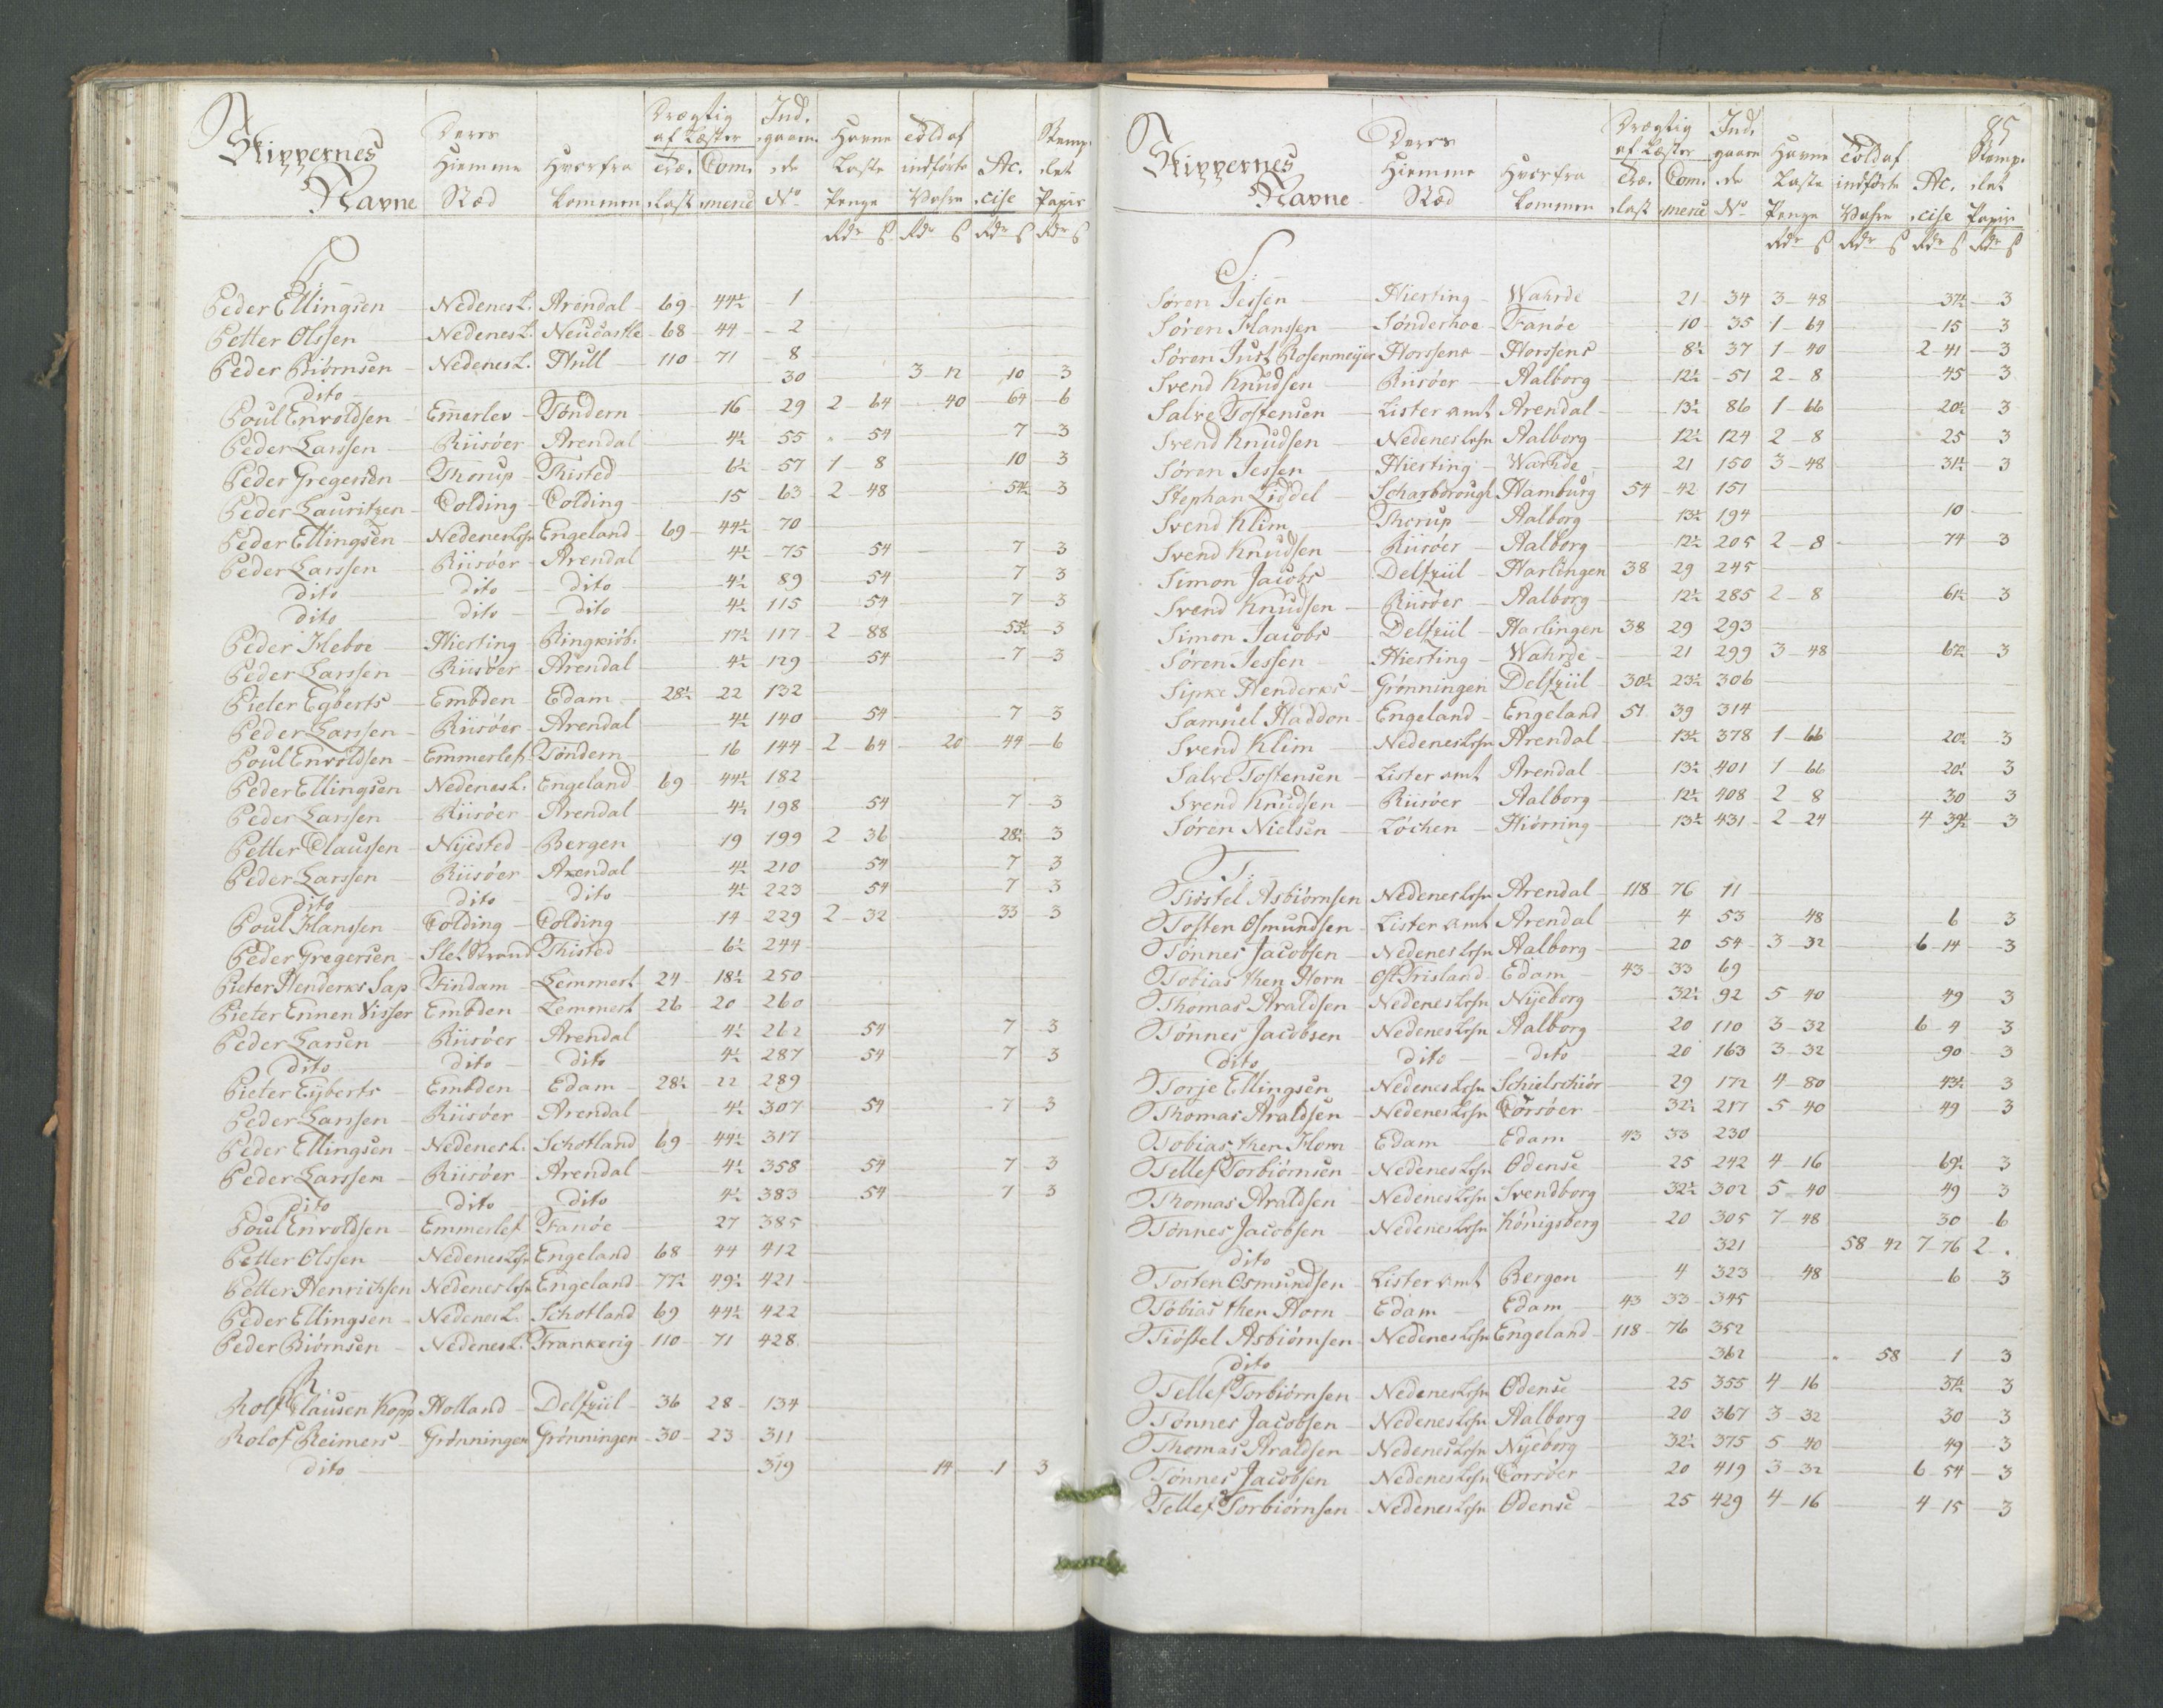 Skippernes Navne | Deres Hiemme Stæd | Hvorfra kommen | Drægtig af Læster Træ-last | Com-merce | Ind-gaaen-de No | Havne Laste Penge Rdr ß | Told af indførte Vahre Rdr ß | Ac-cise Rdr ß | Stemp-let Papir Rdr ß
P:
Peder Ellingsen - Nedenes L. Arendal - 69 - 44½ - 1
Petter Olssen - Nedenes L. Neucastle - 68 - 44 - 2
Peder Biørnsen - Nedenes L. Hull - 110 - 71 - 8
dito 30 3 - 12 10 - 3
Poul Envoldsen - Emerlev - Tøndern 16 - 29 2 - 64 - 40 - 64 - 6
Peder Larssen - Riisøer - Arendal 4½ - 55 " - 54 7 - 3
Peder Gregersen - Thorup - Thisted 6½ - 57 1 - 8 10 - 3
Peder Lauritzen - Colding - Colding 15 - 63 2 - 48 54½ - 3
Peder Ellingsen - Nedenes Lehn Engeland - 69 - 44½ - 70
Peder Larssen - Riisøer - Arendal 4½ - 75 54 7 - 3
dito - dito - dito 4½ 89 54 7 3
dito - dito - dito 4½ 115 54 7 3
Peder Heboe - Hierting - Ringkiøb. 17½ 117 2 - 88 53½ - 3
Peder Larssen - Riisøer - Arendal 4½ 129 54 7 - 3
Pieter Egberts - Embden - Edam - 28½ - 22 132
Peder Larssen - Riisøer - Arendal 4½ 140 54 7 3
Poul Envoldsen - Emmerlef. Tøndern 16 144 2 - 64 20 - 44 - 6
Peder Ellingsen - Nedenes L. Engeland 69 44½ 182
Peder Larssen - Riisøer - Arendal 4½ 198 54 7 - 3
Petter Claussen - Nijested - Bergen 19 199 2 36 28½ 3
Peder Larssen - Riisøer - Arendal 4½ 210 54 7 3
dito - dito - dito 4½ 223 54 7 3
Poul Hanssen - Colding - Colding 14 - 229 2 - 32 33 - 3
Peder Gregersen - Slet Strand Thisted 6½ 244
Pieter Henderks Sap - Findam - Lemmert 24 - 18½ 250
Pieter Ennen Visser Embden - Lemmert 26 - 20 260
Peder Larsen - Riisøer - Arendal 4½ 262 54 7 3
dito - dito - dito 4½ 287 54 7 3
Pieter Eyberts - Embden - Edam - 28½ - 22 289
Peder Larssen - Riisøer - Arendal 4½ 307 54 7 3
Peder Ellingsen - Nedenes L. Schotland 69 - 44½ 317
Peder Larssen - Riisøer - Arendal 4½ 358 54 7 - 3
dito dito dito 4½ 383 54 7 3
Poul Envoldsen - Emmerlef - Fanøe 27 385
Petter Olssen - Nedenes Lehn Engeland 68 - 44 412
Petter Henrichsen Nedenes Lehn Engeland - 77½ 49½ 421
Peder Ellingsen - Nedenes L. Schotland 69 44½ 422
Peder Biørnsen - Nedenes L. Frankerig - 110 - 71 428
R
Rolf Clausen Kopp Holland - Delfzuil - 36 28 - 134
Rolof Reimers - Grønningen Grønningen - 30 - 23 311
dito 319 14 - 1 3
85
Skippernes Navne | Deres Hiemme Stæd | Hvorfra kommen | Drægtig af Læster Træ-last | Com-merce | Ind-gaaen-de No | Havne Laste Penge Rdr ß | Told af indførte Vahre Rdr ß | Ac-cise Rdr ß | Stemp-let Papir Rdr ß
S:
Søren Jessen - Hierting - Wahrde 21 34 3 - 48 37½ - 3
Søren Hanssen - Sønderhoe - Fanøe 10 - 35 1 - 64 15 - 3
Søren Just Rosenmeijer Horssens - Horssens 8½ 37 1 - 40 2 - 41 - 3
Svend Knudsen - Riisøer - Aalborg 12½ - 51 2 - 8 45 3
Salve Tostensen - Lister amt Arendal - 13½ 86 1 - 66 20½ 3
Svend Knudsen - Nedenes Lehn Aalborg 12½ 124 2 - 8 25 3
Søren Jessen - Hierting - Warhde 21 150 3 - 48 31½ 3
Stephan Liddel - Scharbdrough Hamburg 54 - 42 151
Svend Klim - Thorup - Aalborg 13½ 194 10
Svend Knudsen - Riisøer - Aalborg 12½ 205 2 - 8 74 3
Simon Jacobs - Delfziil - Harlingen 38 29 245
Svend Knudsen - Riisøer - Aalborg 12½ 285 2 - 8 61½ 3
Simon Jacobs - Delfziil - Harlingen 38 29 293
Søren Jessen - Hierting - Wahrde 21 299 3 - 48 67½ 3
Sipke Henderks - Grønningen Delfziil - 30½ 23½ 306
Samuel Haddon - Engeland - Engeland 51 39 314
Svend Klim - Nedenes Lehn Arendal 13½ 378 1 - 66 20½ 3
Salve Tostensen - Lister amt Arendal 13½ 401 1 - 66 20½ 3
Svend Knudsen - Riisøer - Aalborg 12½ 408 2 - 8 30 3
Søren Nielsen - Løchen - Hiørring 13½ 431 - 2 - 24 4 - 39½ 3
T:
Tiøstel Asbiørnsen Nedenes Lehn Arendal - 118 - 76 11
Tosten Osmundsen - Lister amt Arendal 4 53 48 6 3
Tønnes Jacobsen - Nedenes Lehn Aalborg - 20 54 - 3 - 32 6 - 14 3
Tobias then Horn - Ost Frisland - Edam - 43 33 69
Thomas Araldsen - Nedenes Lehn Nijeborg 32½ 92 5 - 40 49 3
Tønnes Jacobsen - Nedenes Lehn Aalborg 20 110 3 - 32 6 - 4 3
dito - dito - dito 20 163 3 - 32 90 3
Torje Ellingsen - Nedenes Lehn Schielschiør 29 172 4 - 80 43½ 3
Thomas Araldsen - Nedenes Lehn Corsøer 32½ 217 5 - 40 49 3
Tobias then Horn - Edam - Edam - 43 33 230
Tellef Torbiørnsen - Nedenes Lehn Odense 25 242 4 - 16 69½ 3
Thomas Araldsen - Nedenes Lehn Svendborg 32½ 302 5 - 40 49 3
Tønnes Jacobsen - Nedenes Lehn Kønigsberg 20 305 7 - 48 30 - 6
dito 321 58 - 42 7 - 76 2 - .
Tosten Osmundsen - Lister amt Bergen 4 323 48 6 3
Tobias then Horn - Edam - Edam - 43 33 - 345
Tiøstel Asbiørnsen - Nedenes Lehn Engeland - 118 - 76 352
dito 362 " 58 1 3
Tellef Torbiørnsen - Nedenes Lehn Odense 25 355 4 - 16 3
Tønnes Jacobsen - Nedenes Lehn Aalborg 20 367 3 - 32 30 3
Thomas Araldsen - Nedenes Lehn Nijeborg 32½ 375 5 - 40 49 - 3
Tønnes Jacobsen - Nedenes Lehn Corsøer 20 419 3 - 32 6 - 54 3
Tellef Torbiørnsen - Nedenes Lehn Odense 25 429 4 - 16 4 - 15 3